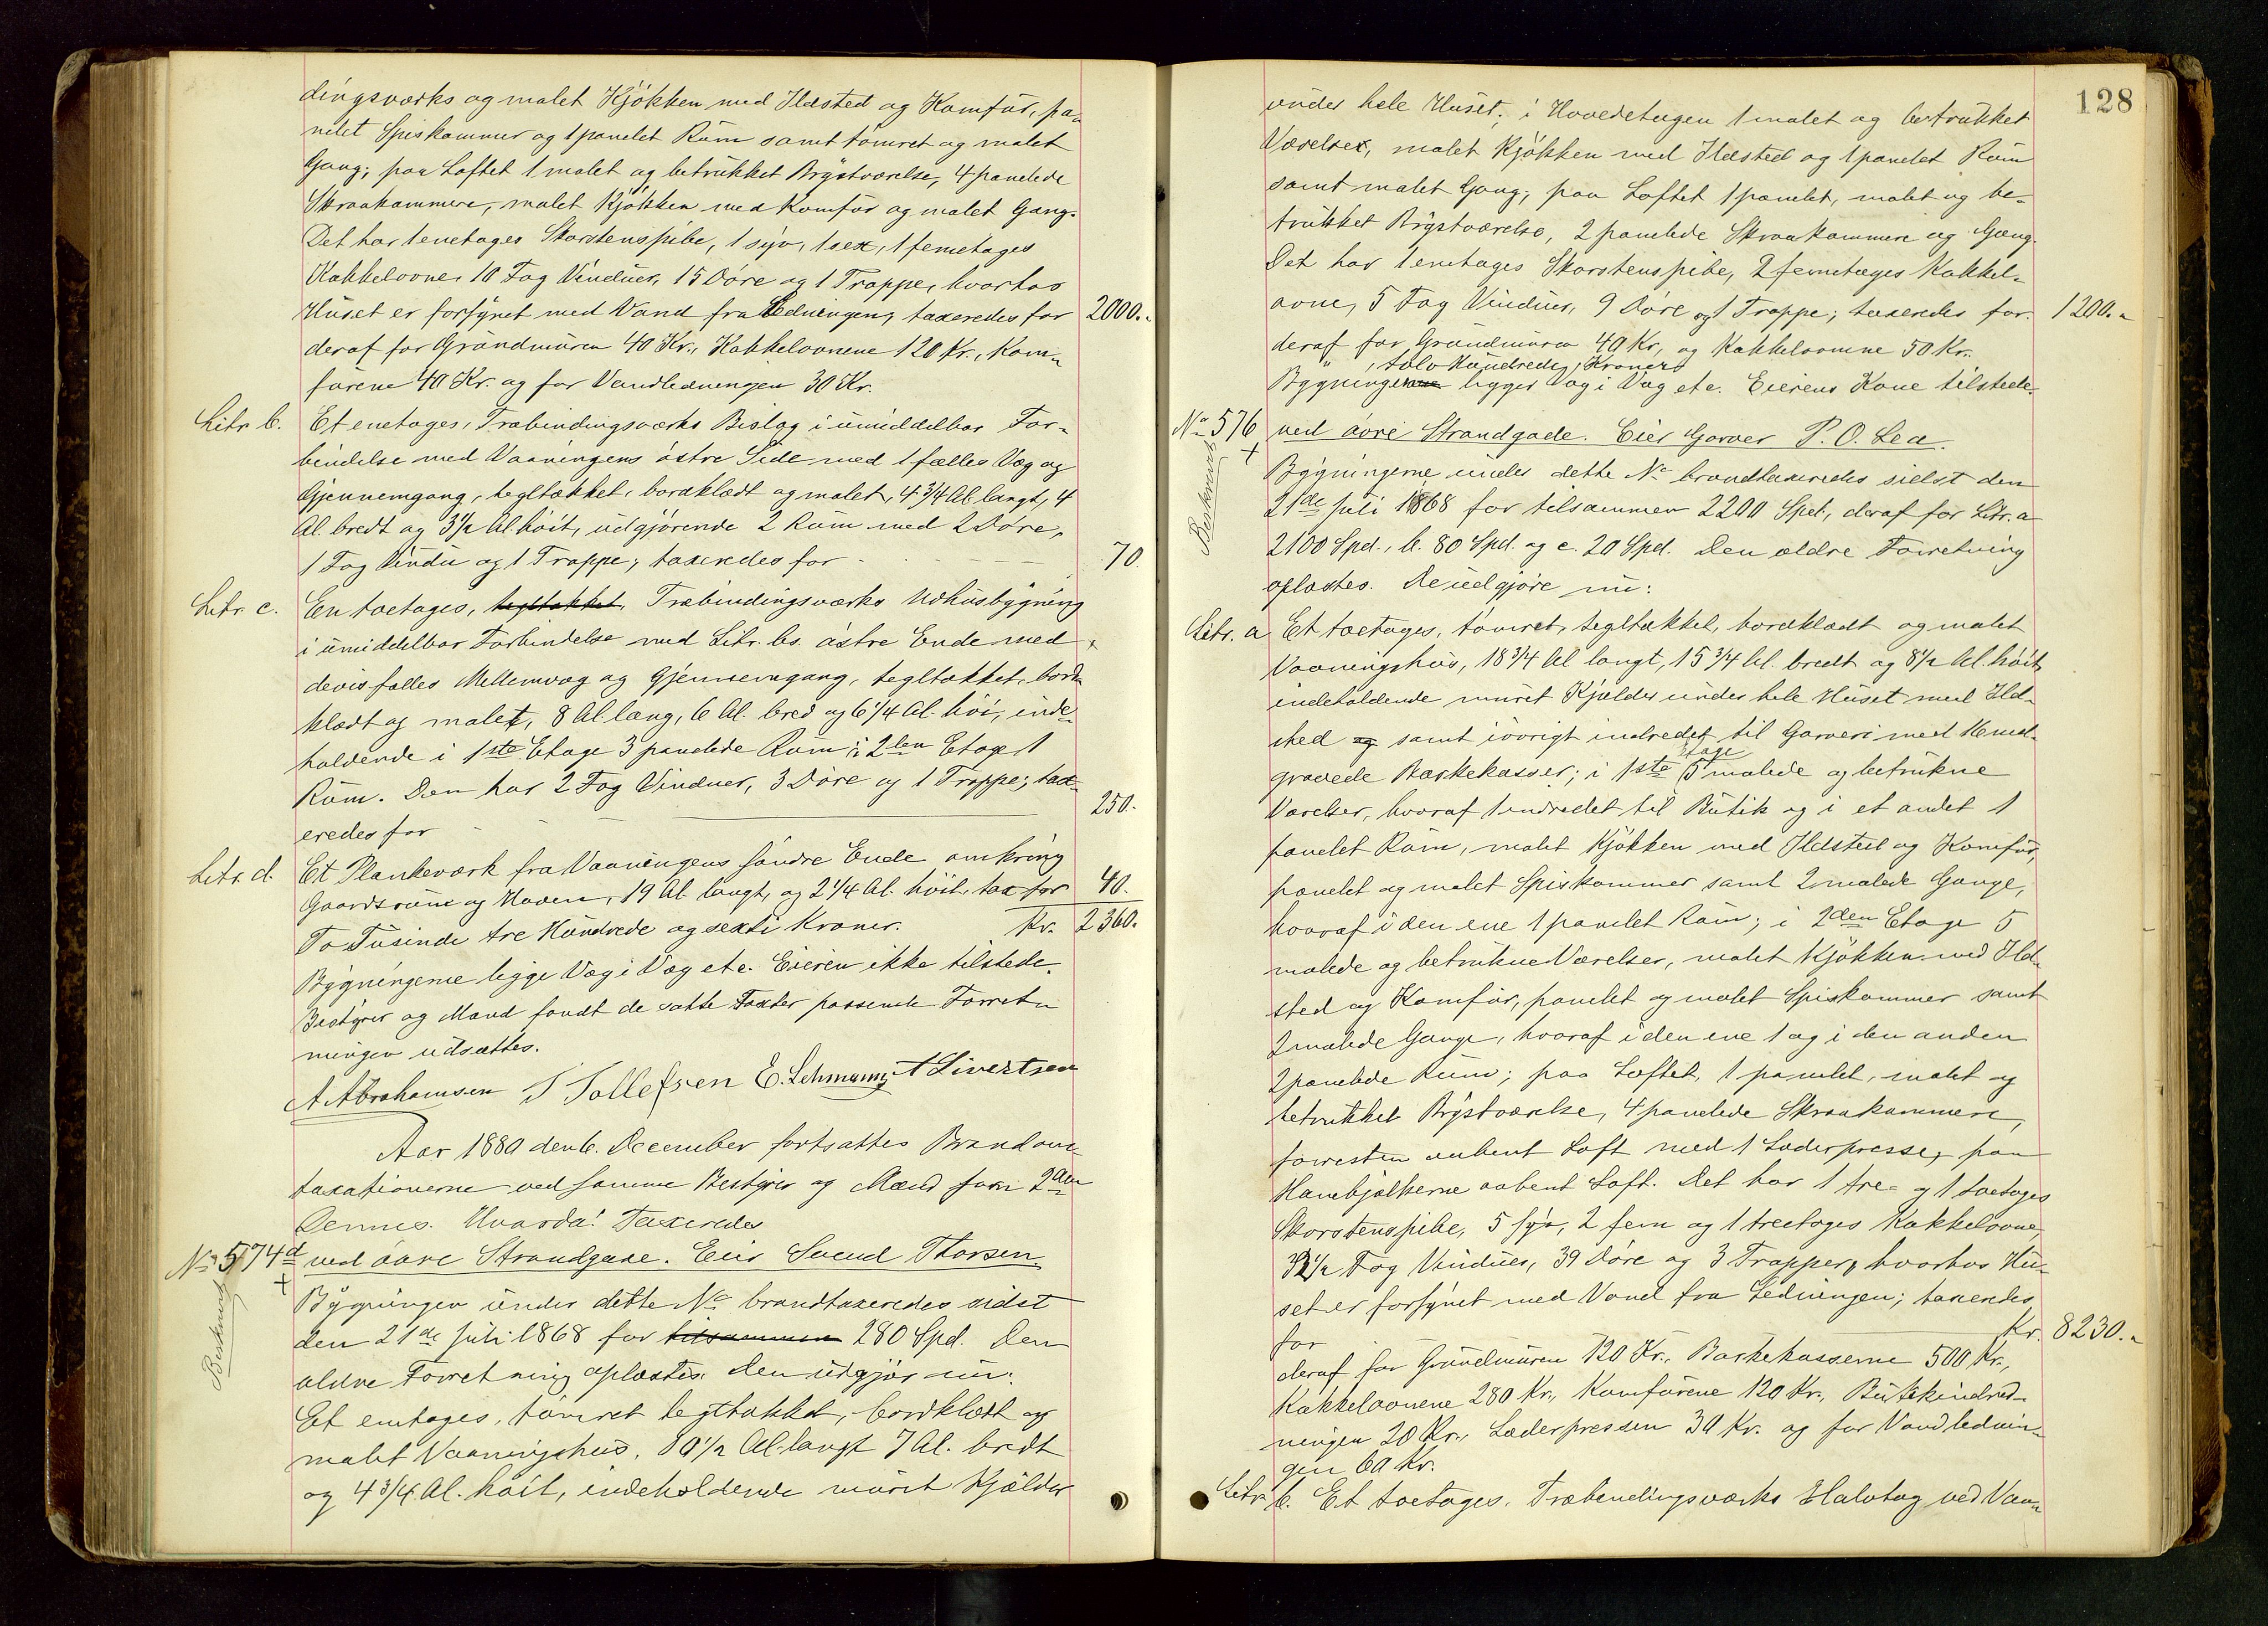 dingsværks og malet Kjökken med Ildsted og Komfur, pa-
nelet Spiskammer og 1 panelet Rum samt tömret og malet
Gang; paa Loftet 1 malet og betrukket Brystværelse, 4 panelede
Skraakammere, malet Kjökken med Komfur og malet Gang.
Det har 1 enetages Skorstenspibe, 1 syv, 1 sex, 1 femetages
Kakkelovne, 10 Fag Vinduer, 15 Döre og 1 Trappe, hvorhos
Huset er forsynet med Vand fra Ledningen; taxeredes for 2000.-
deraf for Grundmuren 40 Kr., Kakkelovnene 120 Kr., Kom-
furene 40 Kr. og for Vandledningen 30 Kr.
Litr. b. Et enetages, Træbindingsværks Bislag i umiddelbar For-
bindelse med Vaaningens östre Side med 1 fælles Væg og
Gjennemgang, tegltækket, bordklædt og malet, 4 3/4 Al. langt, 4
Al. bredt og 3 1/2 Al. höit, udgjörende 2 Rum med 2 Döre,
1 Fag Vindu og 1 Trappe; taxeredes for 70.
Litr. c. En toetages, tegltækket, Træbindingsværks Udhusbygning
i umiddelbar Forbindelse med Litr. bs. östre Ende med
devis fælles Mellemvæg og Gjennemgang, tegltækket, bord-
klædt og malet, 8 Al. lang, 6 Al. bred og 6 1/4 Al. höi, inde-
holdende i 1ste Etage 3 panelede Rum; i 2den Etage 1
Rum. Den har 2 Fag Vinduer, 3 Döre og 1 Trappe; tax-
eredes for 250.
Litr. d. Et Plankeværk fra Vaaningens söndre Ende omkring
Gaardsrum og Haven, 19 Al. langt, og 2 1/4 Al. höit, tax. for 40.
To Tusinde tre Hundrede og sexti Kroner. Kr. 2360.
Bygningerne ligge Væg i Væg etc. Eieren ikke tilstede.
Bestyrer og Mænd fandt de satte Taxter passende. Forret-
ningen udsættes.
A Abrahamsen T Tollefsen E. Lehmann A Sivertsen
Aar 1880 den 6. December fortsattes Brandom-
taxationerne ved samme Bestyrer og Mænd som 2den
Dennes. Hvorda! Taxeredes
No 574d ved övre Strandgade. Eier Svend Thorsen
Beskreved
Bygningen under dette No brandtaxeredes sidst
den 21de Juli 1868 for tilsammen 280 Spd. Den
ældre Forretning oplæstes. Den udgjör nu:
Et enetages, tömret tegltækket, bordklædt og
malet Vaaningshus, 10 1/2 Al. langt 7 Al. bredt
og 4 3/4 Al. höit, indeholdende muret Kjælder
128
under hele Huset; i Hovedetagen 1 malet og betrukket
Værelse, malet Kjökken med Ildsted og 1 panelet Rum
samt malet Gang; paa Loftet 1 panelet, malet og be-
trukket Brystværelse, 2 panelede Skraakammere og Gang.
Det har 1 enetages Skorstenspibe, 2 femetages Kakkel-
ovne, 5 Fag Vinduer, 9 Döre og 1 Trappe; taxeredes for 1200.-
deraf for Grundmuren 40 Kr., og Kakkelovnene 50 Kr.
" , tolv Hundrede, Kroner,
Bygningerne ligger Væg i Væg etc. Eierens Kone tilstede.
No 576 ved övre Strandgade. Eier Garver P. O. Lea.
Beskreved
Bygningerne under dette No brandtaxeredes sidst den
21de Juli 1868 for tilsammen 2200 Spd., deraf for Litr. a
2100 Spd., b. 80 Spd. og c. 20 Spd. Den ældre Forretning
oplæstes. De udgjöre nu:
Litr. a Et toetages, tömret, tegltækket, bordklædt og malet
Vaaningshus, 18 3/4 Al. langt, 15 3/4 Al. bredt og 8 1/2 Al. höit,
indeholdende muret Kjælder under hele Huset med Ild-
sted og samt iövrigt indredet til Garveri med 4 ned-
gravede Barkekasser; i 1ste Etage 5 malede og betrukne
Værelser, hvoraf 1 indredet til Butik og i et andet 1
panelet Rum, malet Kjökken med Ildsted og Komfur,
panelet og malet Spiskammer samt 2 malede Gange,
hvoraf i den ene 1 panelet Rum; i 2den Etage 5
malede og betrukne Værelser, malet Kjökken med Ild-
sted og Komfur, panelet og malet Spiskammer samt
2 malede Gange, hvoraf i den ene 1 og i den anden
2 panelede Rum; paa Loftet, 1 panelet, malet og
betrukket Brystværelse, 4 panelede Skraakammere,
forresten aabent Loft med 1 Læderpresse, paa
Hanebjælkerne aabent Loft. Det har 1 tre- og 1 toetages
Skorstenspibe, 5 syv, 2 fem og 1 treetages Kakkelovne,
32 1/2 Fag Vinduer, 39 Döre og 3 Trapper, hvorhos Hu-
set er forsynet med Vand fra Ledningen; taxeredes
for Kr. 8230.-
deraf for Grundmuren 120 Kr., Barkekasserne 500 Kr.,
Kakkelovnene 280 Kr., Komfurene 120 Kr., Butikindred-
ningen 20 Kr., Læderpressen 30 Kr. og for Vandlednin-
gen 60 Kr.
Litr. b. Et toetages, Træbindingsværks Halvtag ved Vaa-